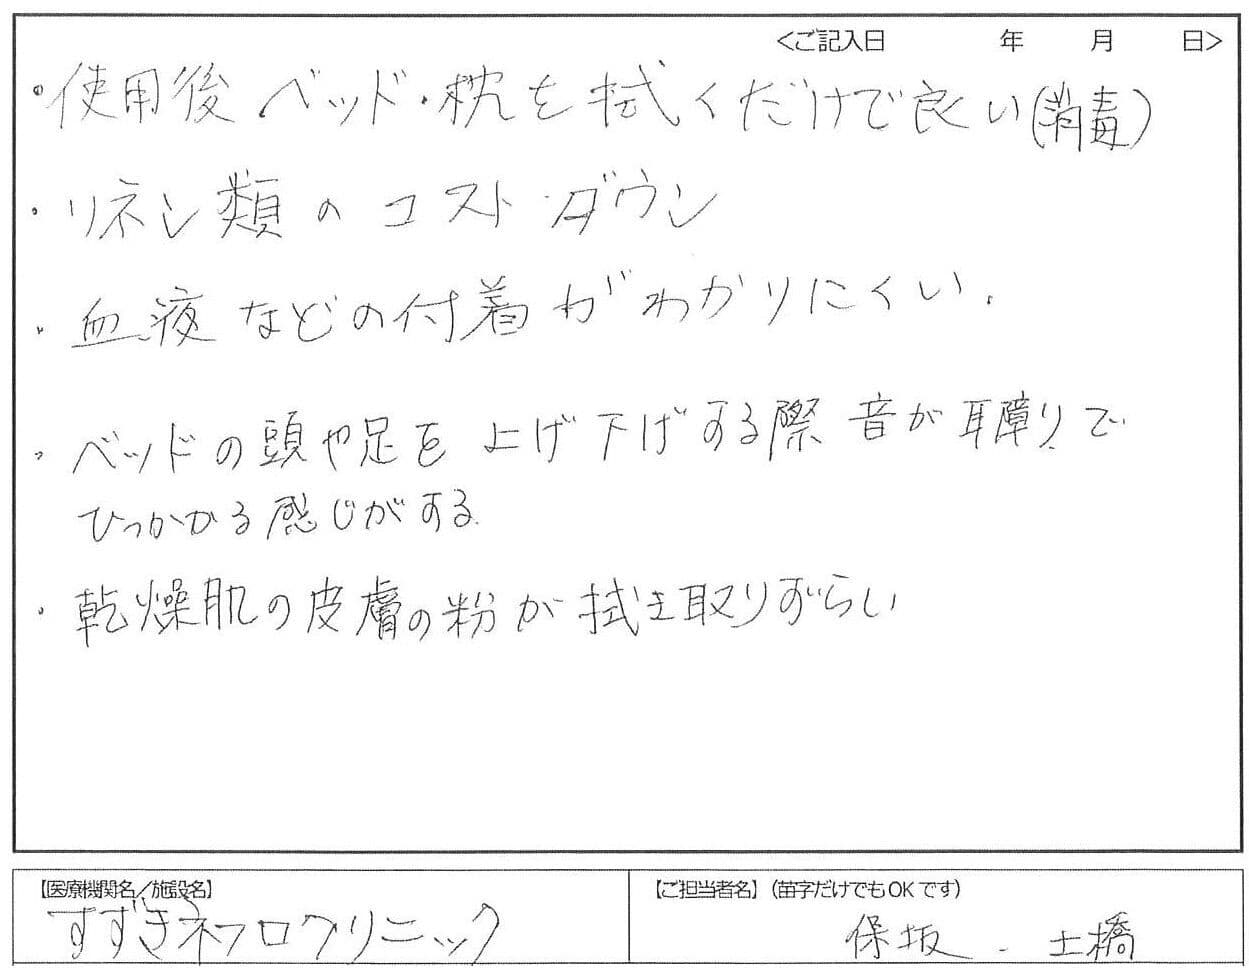 <ご記入日　　年　　月　　日>
・使用後 ベッド・枕を拭くだけで良い(消毒)
・リネン類のコスト・ダウン
・血液などの付着がわかりにくい.
・ベッドの頭や足を上げ下げする際 音が耳障りで
ひっかかる感じがする.
・乾燥肌の皮膚の粉が拭き取りずらい
【医療機関名／施設名】
すずきネフロクリニック
【ご担当者名】（苗字だけでもOKです）
保坂 . 土橋